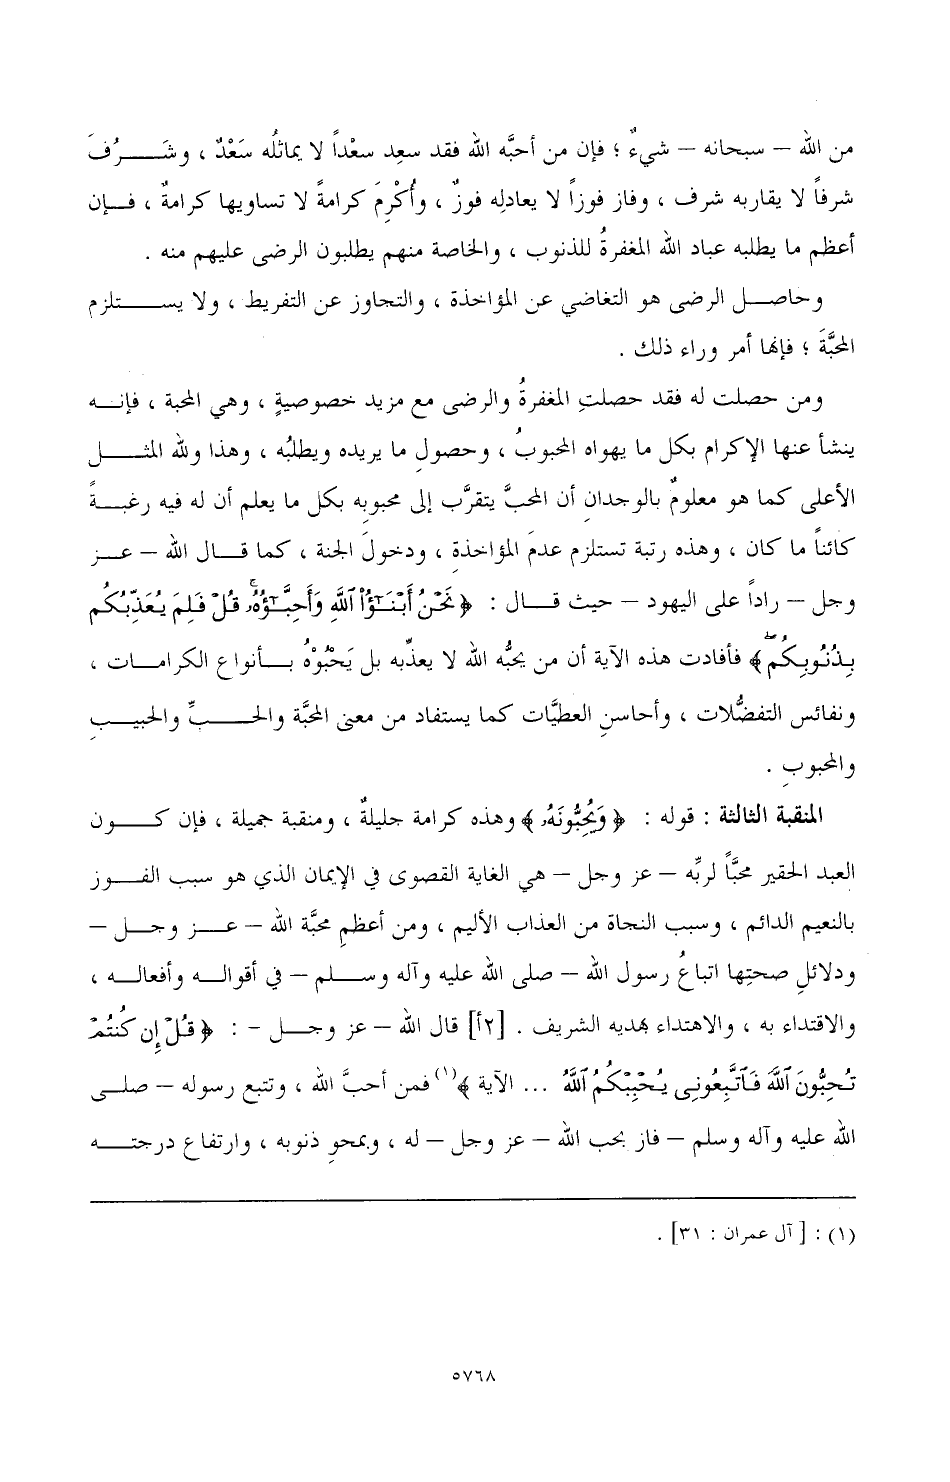 من الله – سبحانه – شيءٌ ؛ فإن من أحبَّه الله فقد سعِد سعْداً لا يماثلُه سَعْدٌ ، وشَرُفَ
شرفاً لا يقاربه شرف ، وفاز فوزاً لا يعادلِه فوزٌ ، وأُكْرِمَ كرامةً لا تساويها كرامةٌ ، فإن
أعظم ما يطلبه عباد الله المغفرةُ للذنوب ، والخاصة منهم يطلبون الرضى عليهم منه .
وحاصل الرضى هو التغاضي عن المؤاخذة ، والتجاوز عن التفريط ، ولا يستلزم
المحبَّةَ ؛ فإنها أمر وراء ذلك .
ومن حصلت له فقد حصلتِ المغفرةُ والرضى مع مزيد خصوصيةٍ ، وهي المحبة ، فإنه
ينشأ عنها الإكرام بكل ما يهواه المحبوبُ ، وحصولِ ما يريده ويطلبُه ، وهذا ولله المثل
الأعلى كما هو معلومٌ بالوجدانِ أن المحبَّ يتقرَّب إلى محبوبِه بكل ما يعلم أن له فيه رغبةً
كائناً ما كان ، وهذه رتبة تستلزِم عدمَ المؤاخذة ، ودخولَ الجنة ، كما قال الله – عز
وجل – راداً على اليهود – حيث قال : ﴿ نَحْنُ أَبْنَـٰٓؤُا۟ ٱللَّهِ وَأَحِبَّـٰٓؤُهُۥ ۚ قُلْ فَلِمَ يُعَذِّبُكُم
بِذُنُوبِكُم ۖ ﴾ فأفادت هذه الآية أن من يحبُّه الله لا يعذِّبه بل يَحْبُوْهُ بأنواع الكرامات ،
ونفائس التفضُّلات ، وأحاسنِ العطيَّات كما يستفاد من معنى المحبَّة والحبِّ والحبيبِ
والمحبوبِ .
المنقبة الثالثة : قوله : ﴿ وَيُحِبُّونَهُۥ ﴾ وهذه كرامة جليلةٌ ، ومنقبة جميلة ، فإن كون
العبد الحقير محبَّاً لربِّه – عز وجل – هي الغاية القصوى في الإيمان الذي هو سبب الفوز
بالنعيم الدائم ، وسبب النجاة من العذاب الأليم ، ومن أعظمِ محبَّة الله – عز وجل –
ودلائلِ صحتِها اتباعُ رسول الله – صلى الله عليه وآله وسلم – في أقواله وأفعاله ،
والاقتداء به ، والاهتداء بهديه الشريف . [٢أ] قال الله – عز وجل – : ﴿ قُلْ إِن كُنتُمْ
تُحِبُّونَ ٱللَّهَ فَٱتَّبِعُونِى يُحْبِبْكُمُ ٱللَّهُ ... الآية ﴾(١) فمن أحبَّ الله ، وتتبع رسوله – صلى
الله عليه وآله وسلم – فاز بحب الله – عز وجل – له ، وبمحوِ ذنوبه ، وارتفاع درجته
(١) : [ آل عمران : ٣١] .
٥٧٦٨